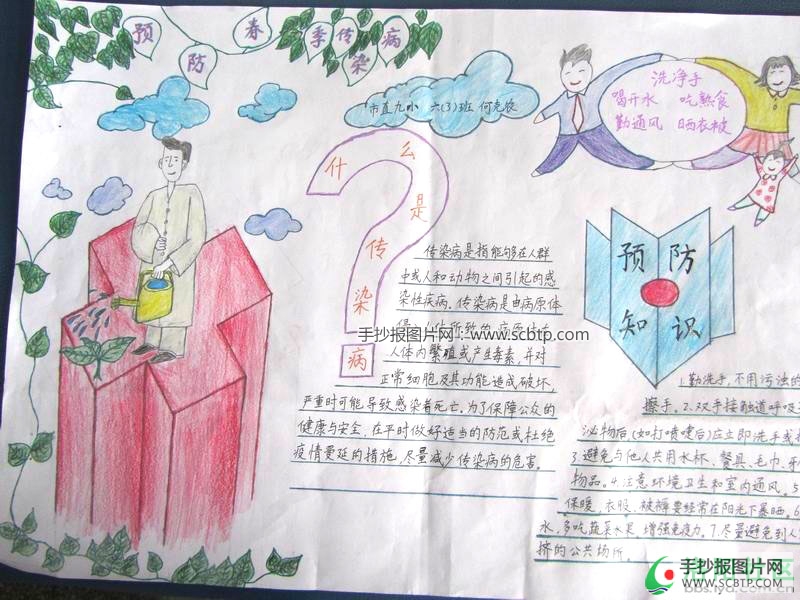 预防春季传染病
市直九小 六(3)班 何
洗净手
喝开水 吃熟食
勤通风 晒衣被
什么是传染病
传染病是指能够在人群
中或人和动物之间引起的感
染性疾病,传染病是由病原体
手抄报图片网:www.scbtp.com
人体内繁殖或产生毒素,并对
正常细胞及其功能造成破坏,
严重时可能导致感染者死亡,为了保障公众的
健康与安全,在平时做好适当的防范或杜绝
疫情蔓延的措施,尽量减少传染病的危害。
预防
知识
1.勤洗手,不用污浊的
擦手。2.双手接触道呼吸
泌物后(如打喷嚏后)应立即洗手或
3.避免与他人共用水杯、餐具、毛巾、
物品。4.注意环境卫生和室内通风。5
保暖,衣服、被褥要经常在阳光下暴晒。6
水,多吃蔬菜水果,增强免疫力。7.尽量避免到人
挤的公共场所。
手抄报图片网
WWW.SCBTP.COM